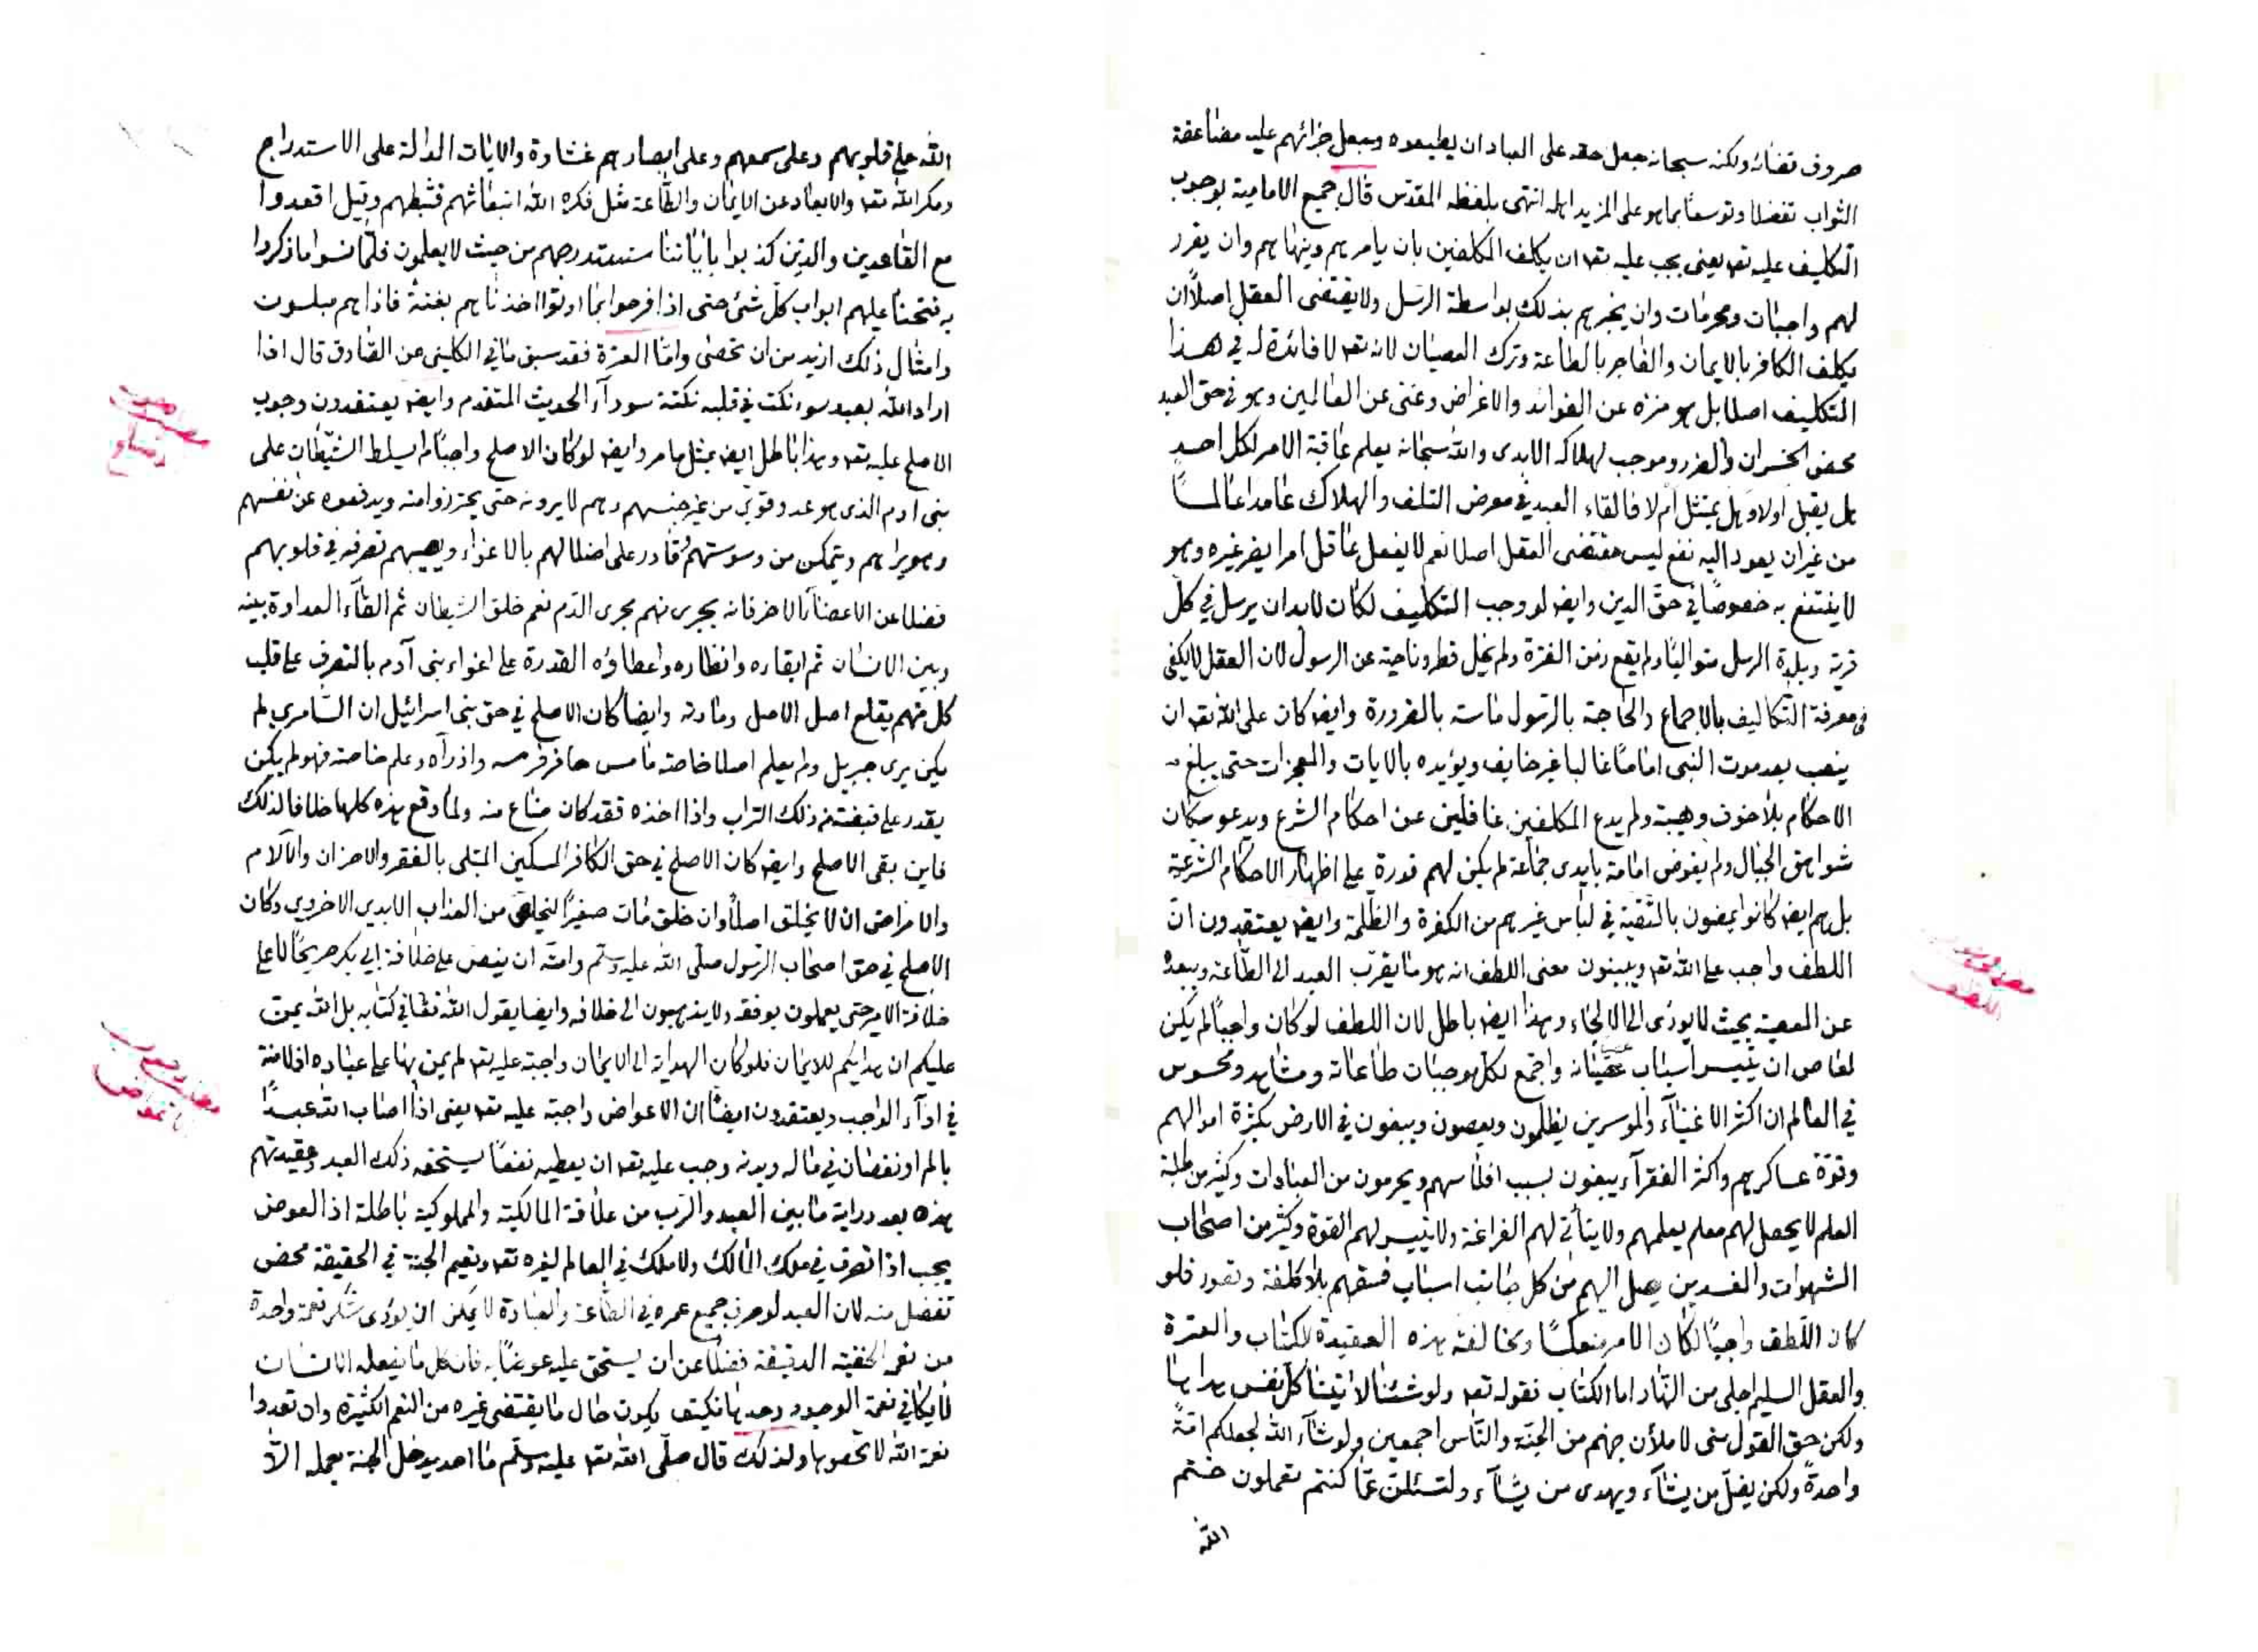 صروف قضائه ولكنه سبحانه جعل حقه على العباد ان يطيعوه وجعل جزائهم عليه مضاعفة
الثواب تفضلا وتوسعا بما هو على المزيد اهله انتهى بلفظه المقدس قال جميع الامامية بوجوب
التكليف عليه تعه يعنى يجب عليه تعه ان يكلف المكلفين بان يامرهم وينهاهم وان يقرر
لهم واجبات ومحرمات وان يخبرهم بذلك بواسطة الرسل ولا يقتضى العقل اصلاً ان
يكلف الكافر بالايمان والفاجر بالطاعة وترك العصيان لانه تعه لا فائدة له في هذا
التكليف اصلا بل هو منزه عن الفوائد والاغراض وغنى عن العالمين وهو في حق العبد
محض الخسران والضرر وموجب لهلاكه الابدى والله سبحانه يعلم عاقبة الامر لكل احد
هل يقبل اولا وهل يمتثل ام لا فالقاء العبد في معرض التلف والهلاك عامدا عالما
من غير ان يعود اليه نفع ليس مقتضى العقل اصلا نعم لا يفعل عاقل امرا يضر غيره وهو
لا ينتفع به خصوصا في حق الدين وايضه لو وجب التكليف لكان لابد ان يرسل في كل
قرية وبلدة الرسل متواليا ولم يقع زمن الفترة ولم يخل قطر وناحية عن الرسول لان العقل لا يكفى
في معرفة التكاليف بالاجماع والحاجة بالرسول ماسة بالضرورة وايضه كان على الله تعه ان
ينصب بعد موت النبى اماما غالبا غير خايف ويؤيده بالايات والمعجزات حتى يبلغ
الاحكام بلا خوف وهيبة ولم يدع المكلفين غافلين عن احكام الشرع ويدعو سكان
شواهق الجبال ولم يفوض امامة بايدى جماعة لم يكن لهم قدرة على اظهار الاحكام الشرعية
بل هم ايضه كانوا يمضون بالتقية في لباس غيرهم من الكفرة والظلمة وايضه يعتقدون ان
اللطف واجب على الله تعه ويبينون معنى اللطف انه هو ما يقرب العبد الى الطاعة ويبعده
عن المعصية بحيث لا يودى الى الالجاء وهذا ايضه باطل لان اللطف لو كان واجبًا لم يكن
لعاص ان تتيسر اسباب عصيانه واجتمع لكل موجبات طاعاته ومشاهد ومحسوس
في العالم ان اكثر الاغنيآء والموسرين يظلمون ويعصون ويبغون في الارض بكثرة اموالهم
وقوة عساكرهم واكثر الفقرآء يبغون بسبب افلاسهم ويحرمون من العبادات وكثير من طلبة
العلم لا يحصل لهم معلم يعلمهم ولا يتأتى لهم الفراغة ولا تتيسر لهم القوة وكثير من اصحاب
الشهوات والمفسدين يصل اليهم من كل جانب اسباب فسقهم بلا كلفة وقصور فلو
كان اللطف واجبًا لكان الامر منعكسًا ومخالفة هذه العقيدة للكتاب والعترة
والعقل السليم اجلى من النهار اما الكتاب فقوله تعه ولو شئنا لاتينا كل نفس هداها
ولكن حق القول منى لاملأن جهنم من الجنة والناس اجمعين ولو شآء الله لجعلكم امة
واحدةً ولكن يضل من يشآء ويهدى من يشآء ولتسئلن عما كنتم تعملون ختم
الله
معتقد وجوب
اللطف
الله على قلوبهم وعلى سمعهم وعلى ابصارهم غشاوة والايات الدالة على الاستدراج
ومكر الله تعه والابعاد عن الايمان والطاعة مثل فكره الله انبعاثهم فثبطهم وقيل اقعدوا
مع القاعدين والذين كذبوا باياتنا سنستدرجهم من حيث لا يعلمون فلما نسوا ما ذكروا
به فتحنا عليهم ابواب كل شئ حتى اذا فرحوا بما اوتوا اخذناهم بغتة فاذا هم مبلسون
وامثال ذلك ازيد من ان تحصى واما العترة فقد سبق ما في الكلينى عن الصادق قال اذا
اراد الله بعبد سوء نكت في قلبه نكتة سودآء الحديث المتقدم وايضه يعتقدون وجوب
الاصلح عليه تعه وهذا باطل ايضه بمثل ما مر وايضه لو كان الاصلح واجبًا لم يسلط الشيطان على
بنى ادم الذى هو عدو قوي من غير جنسهم وهم لا يرونه حتى يحترزوا منه ويدفعوه عن نفسهم
وهو يراهم ويتمكن من وسوستهم وقادر على اضلالهم بالاغواء ويصيبهم تصرفه في قلوبهم
فضلا عن الاعضآء الاخر فانه يجرى منهم مجرى الدم نعم خلق الشيطان ثم القآء العداوة بينه
وبين الانسان ثم ابقاره وانظاره واعطاؤه القدرة على اغواء بنى آدم بالتصرف على قلب
كل منهم يقلع اصل الاصل ومادته وايضا كان الاصلح في حق بنى اسرائيل ان السامرى لم
يكن يرى جبريل ولم يعلم اصلا خاصة ما مس حافر فرسه واذ رآه وعلم خاصته فهو لم يكن
يقدر على قبضة من ذلك التراب واذا اخذه فقد كان ضاع منه ولما وقع هذه كلها خلافا لذلك
فاين بقى الاصلح وايضه كان الاصلح في حق الكافر المسكين المبتلى بالفقر والاحزان والآلام
والامراض ان لا يخلق اصلاً وان خلق مات صغيرًا لتخلص من العذاب الابدى الاخروى وكان
الاصلح في حق اصحاب الرسول صلى الله عليه وسلم وامته ان ينص على خلافة ابي بكر صريحًا لا على
خلافة الامير حتى يعملون بوفقه ولا يذهبون الى خلافه وايضا يقول الله تعالى في كتابه بل الله يمن
عليكم ان هداكم للايمان فلو كان الهداية الى الايمان واجبة عليه تعه لم يمن بها على عباده اذ لا منة
في ادآء الواجب ويعتقدون ايضًا ان الاعواض واجبة عليه تعه يعنى اذا اصاب الله عبدًا
بالم او نقصان في ماله وبدنه وجب عليه تعه ان يعطيه نفعًا يستحقه ذلك العبد وعقيدتهم
هذه بعد دراية ما بين العبد والرب من علاقة المالكية والمملوكية باطلة اذ العوض
يجب اذا تصرف في ملك المالك ولا ملك في العالم لغيره تعه ونعيم الجنة في الحقيقة محض
تفضل منه لان العبد لو صرف جميع عمره في الطاعة والعبادة لا يمكن ان يؤدى شكر نعمة واحدة
من نعمه الخفية الدقيقة فضلاً عن ان يستحق عليه عوضًا به فان كل ما يفعله الانسان
لا يكافي نعمة الوجود وحدها فكيف يكون حال ما يقتضى غيره من النعم الكثيرة وان تعدوا
نعمة الله لا تحصوها ولذلك قال صلى الله تعه عليه وسلم ما احد يدخل الجنة بعمله الا